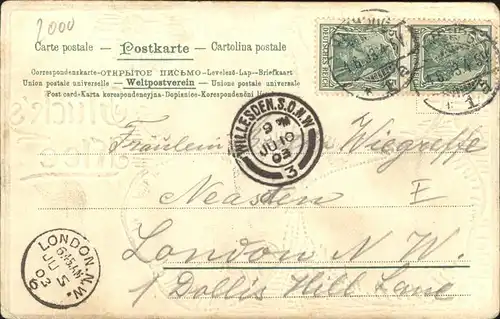 2000
Carte postale — Postkarte — Cartolina postale
Correspondenzkarte—ОТКРЫТОЕ ПИСЬМО—Levelező-Lap—Briefkaart
Union postale universelle — Weltpostverein — Unione postale universale
Post card-Karta korespondencyjna-Dopisnice-Korespondenční lístek
DEUTSCHES REICH
WILLESDEN.S.O.N.W
JU 10
03
3
Fräulein Wiegrette
Neasten
London N.W.
Dollis Hill Lane
LONDON.N.W.
JU
03